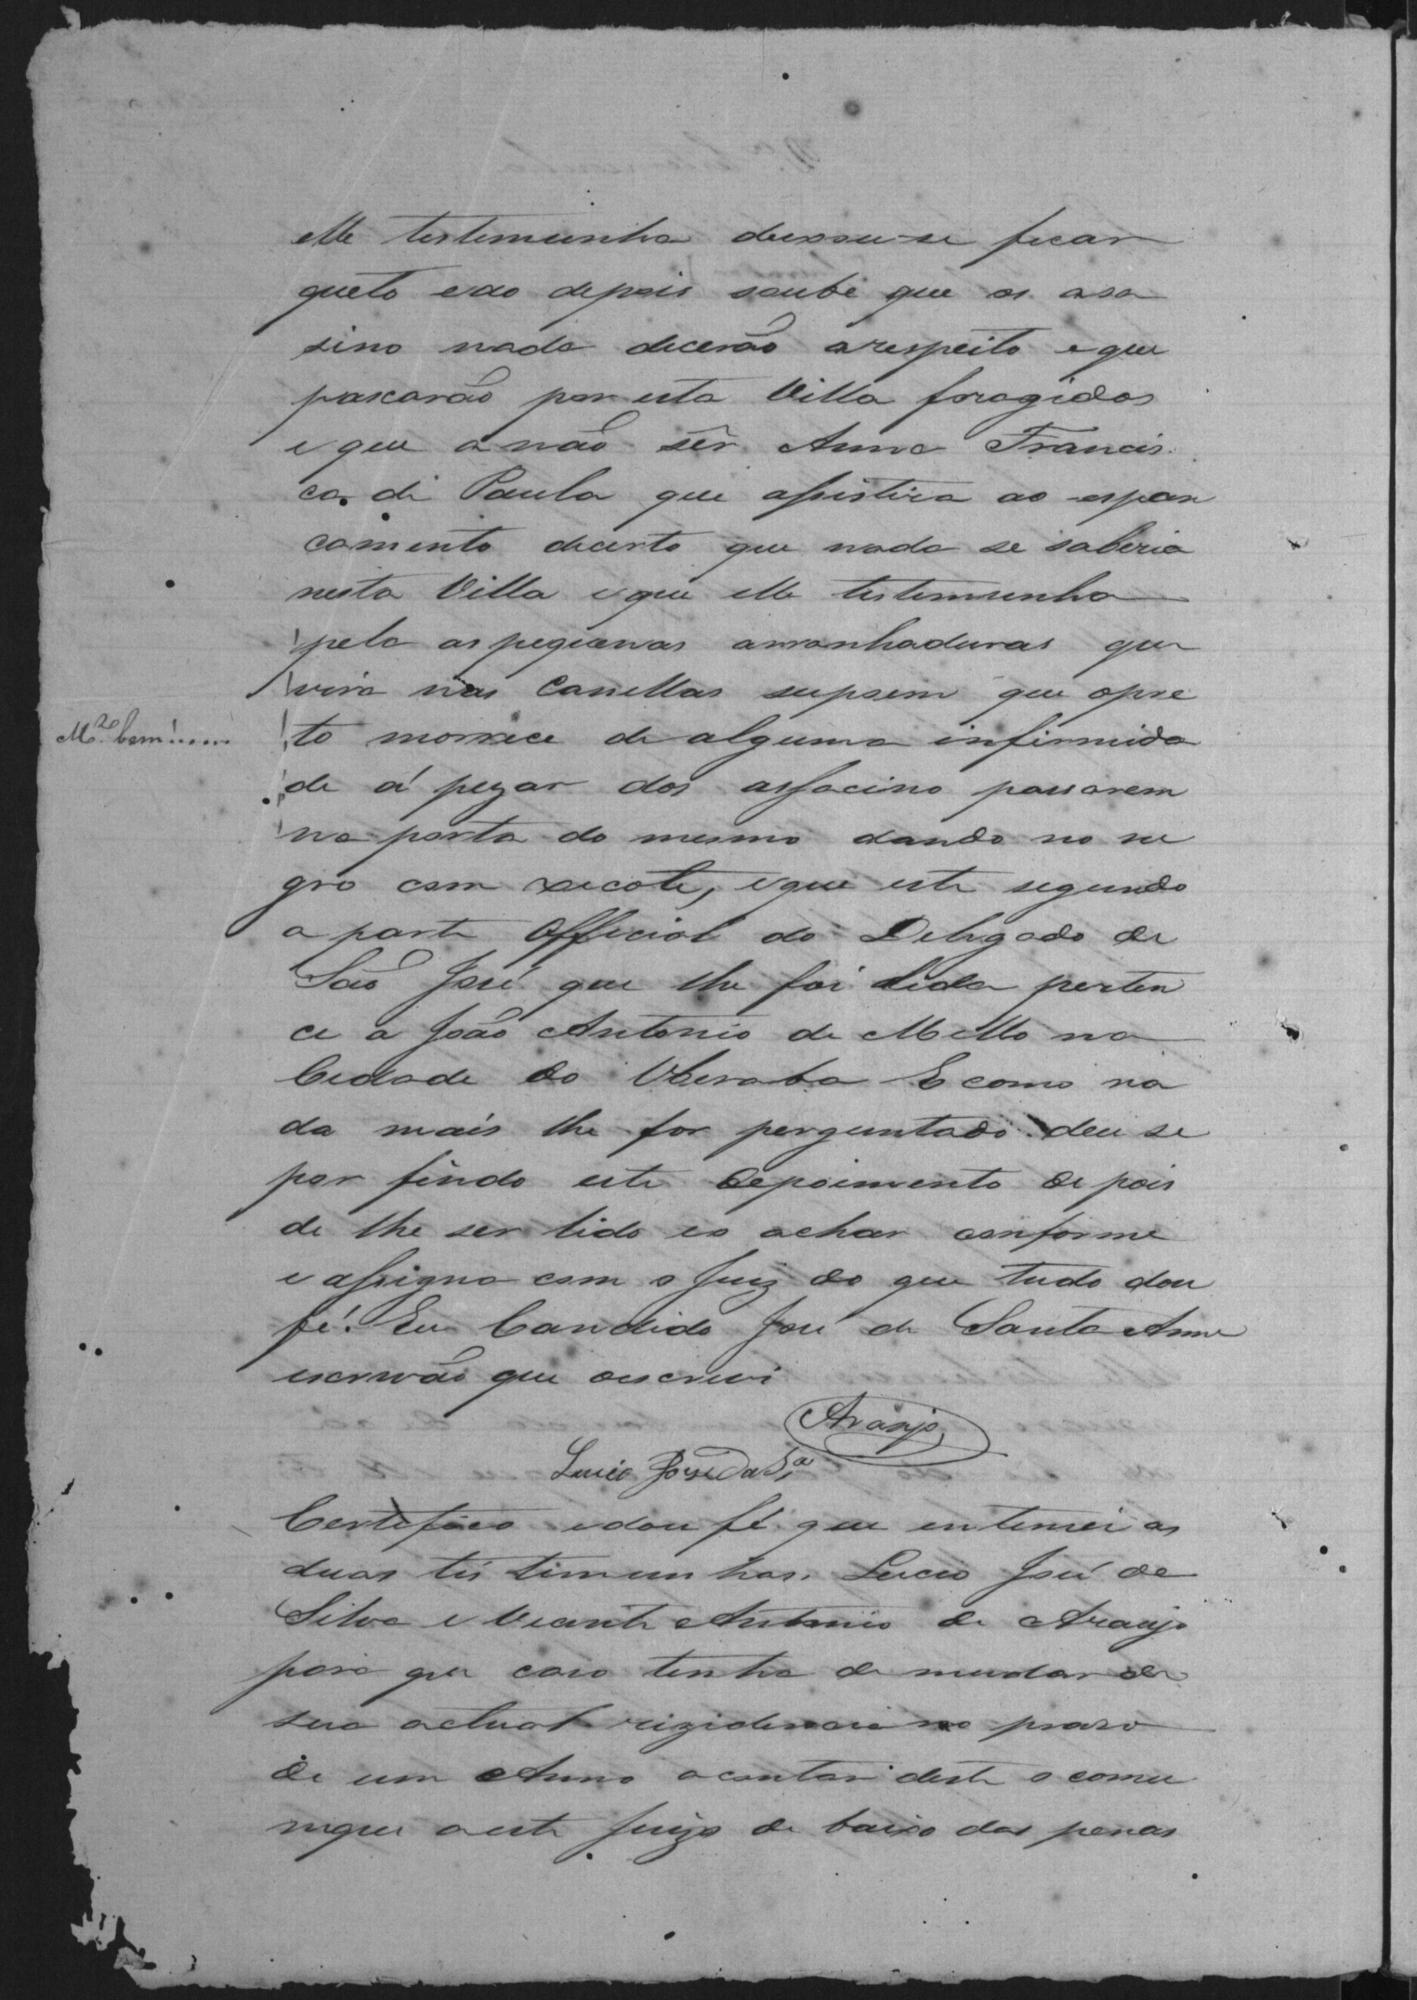 elle testemunha deixou-se ficar
queto e ao depois soube que os asa
sino nada decerão arespeito e que
pascarão por esta Villa foragidos
e que a não sêr Anna Francis
ca di Paula que assistira ao espan
camento decerto que nada se saberia
nesta Villa e que elle testemunha
pela as pequenas arranhaduras que
vira nas Canellas supoem que opre
M.to bem!.....
to morrece de alguma infirmida
de á pezar dos assacino passarem
na porta do mesmo dando no ne
gro com xecote, e que este segundo
a parte Official do Delegado de
São José que lhe foi lida perten
ce a João Antonio de Mello na
Cidade do Uberaba E como na
da mais lhe for perguntado deu se
por findo este depoimento de pois
de lhe ser lido eo achar conforme
e assigna com o Juiz do que tudo dou
fé. Eu Candido José de Santa Anna
escrivão que oescrevi
Araujo
Lucio José da S.a
Certefico edou fé que entemei as
duas tes timunhas. Lucio José de
Silva e Vicente Antonio de Araujo
para que caso tenha de mudar de
sua actual rizidencia no praso
de um Anno acontar deste o comu
nique a este Juizo de baixo das penas